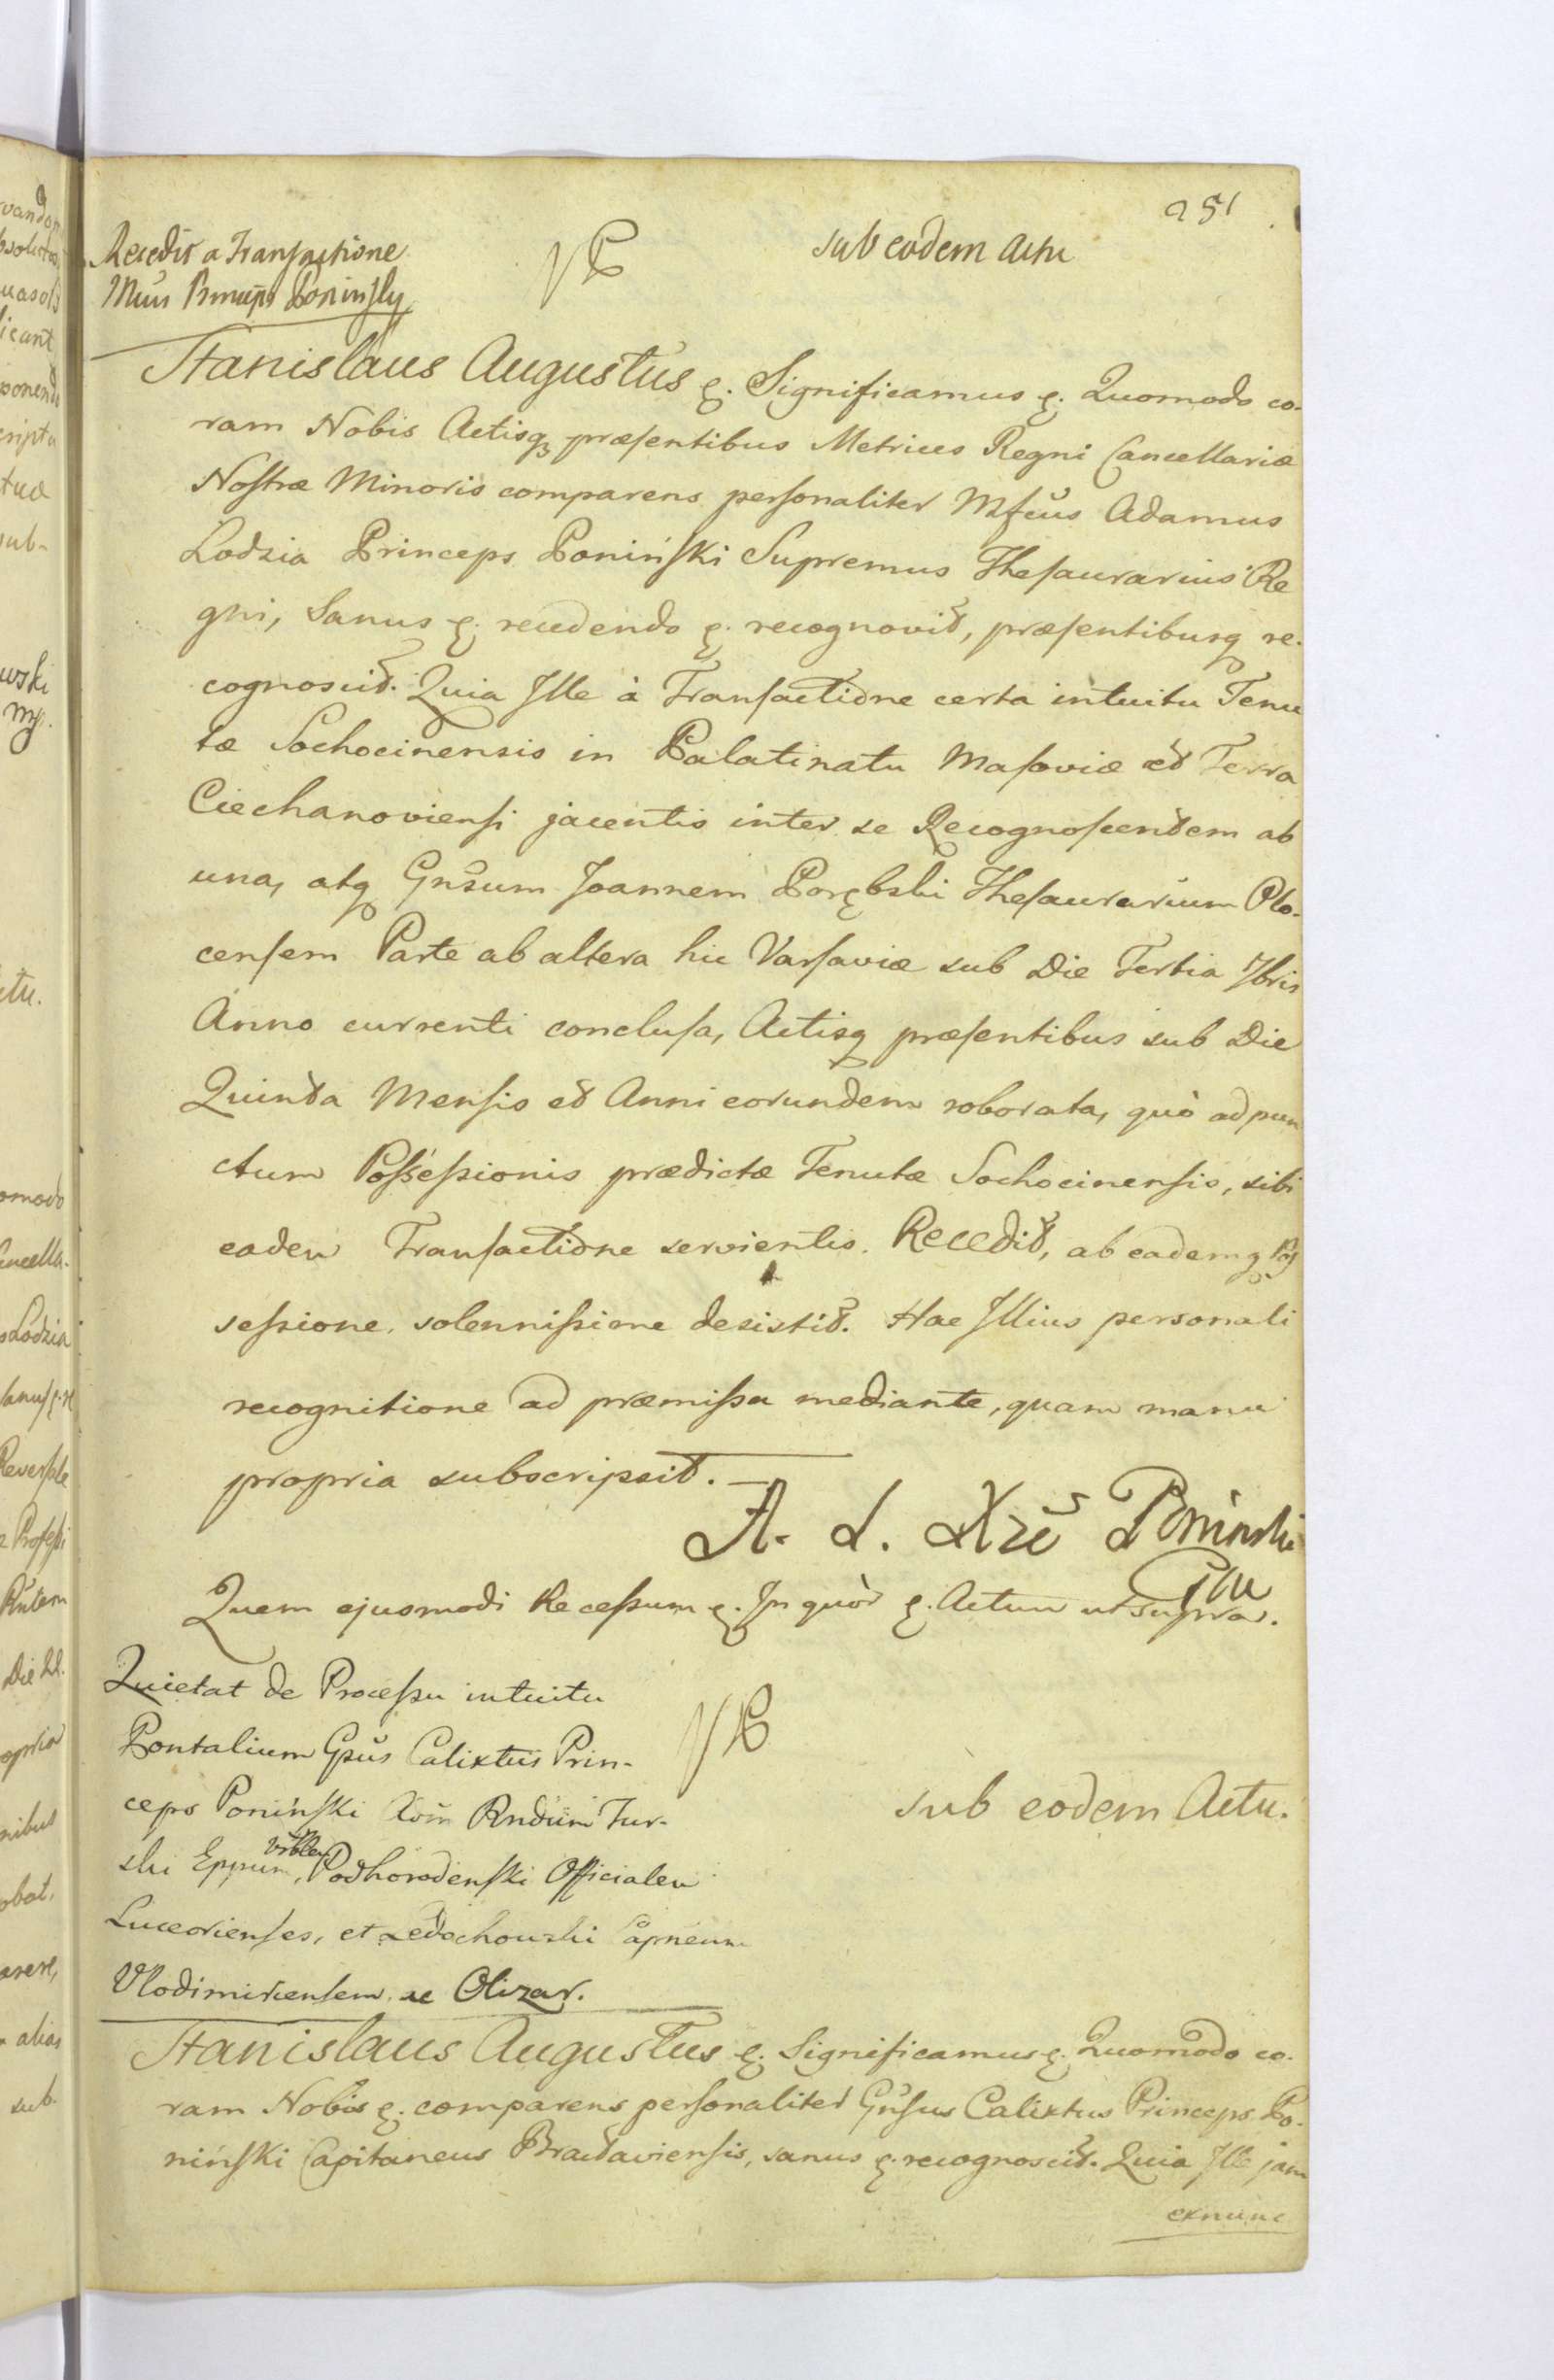 251
Recedit a Transactione
Mcus Princeps Poninsky
sub eodem Actu
Stanislaus Augustus &. Significamus &. Quomodo co-
ram Nobis Actisq præsentibus Metrices Regni Cancellariæ
Nostræ Minoris comparens personaliter Mfcus Adamus
Lodzia Princeps Poniński Supremus Thesaurarius Re
gni, Sanus &. recedendo &. recognovit, præsentibusq re-
cognoscit. Quia Ille à Transactione certa intuitu Tenu
tæ Sochocinensis in Palatinatu Masoviæ et Terra
Ciechanoviensi jacentis inter se Recognoscentem ab
una, atq Gnsum Joannem Porębski Thesaurarium Plo-
censem Parte ab altera hic Varsaviæ sub Die Tertia 7bris
Anno currenti conclusa, Actisq præsentibus sub Die
Quinta Mensis et Anni eorundem roborata, quò ad pun
ctum Possessionis prædictæ Tenutæ Sochocinensis, sibi
eadem Transactione servientis. Recedit, ab eademq Pos
sessione, solennissime desistit. Hac Illius personali
recognitione ad præmissa mediante, quam manu
propria subscripsit.
A. Ł. Xże Poniński
Quem ejusmodi Recessum &. In quòr &. Actum ut supra.
Quietat de Processu intuitu
Pontalium Gsus Calixtus Prin-
ceps Poniński Rndum Tur-
ski Eppum, Podhorodenski Officialem
Luceorienses, et Ledochowski Capneum
Vlodimiriensem ac Olizar.
sub eodem Actu.
Stanislaus Augustus &. Significamus &. Quomodo co-
ram Nobis &. comparens personaliter Gnsus Calixtus Princeps Po-
niński Capitaneus Braclaviensis, sanus &. recognoscit. Quia Ille jam
exnunc